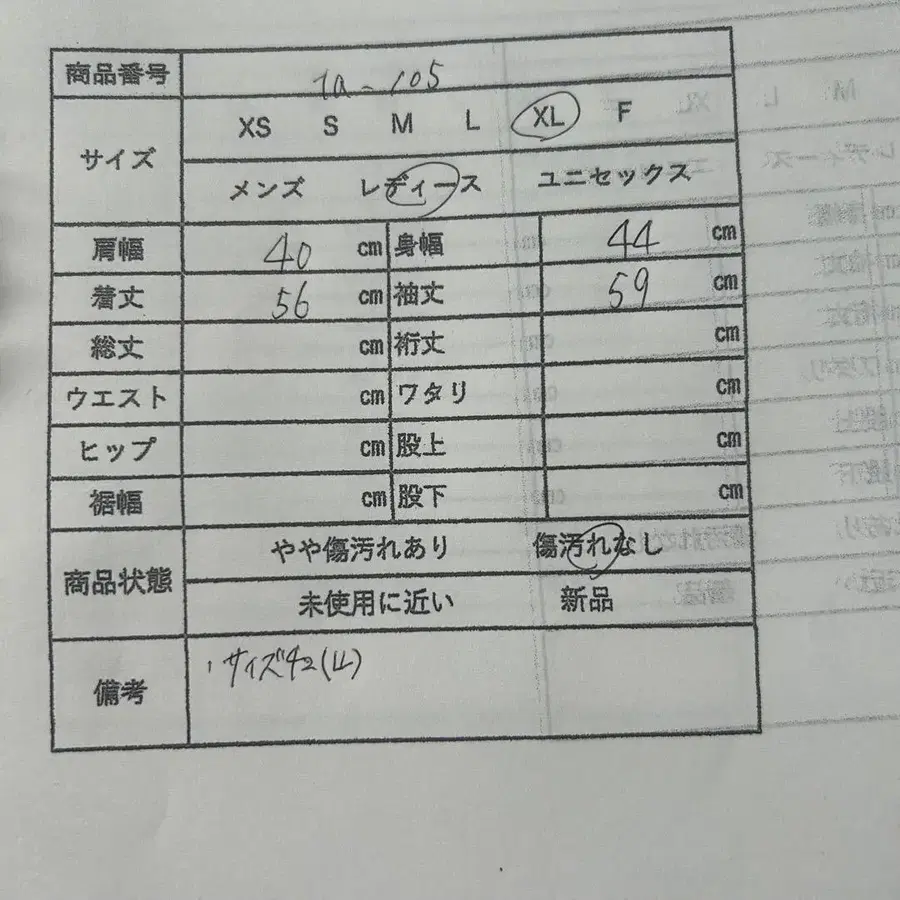 商品番号 ta-105
サイズ XS S M L XL F
メンズ レディース ユニセックス
肩幅 40 cm 身幅 44 cm
着丈 56 cm 袖丈 59 cm
総丈 cm 裄丈 cm
ウエスト cm ワタリ cm
ヒップ cm 股上 cm
裾幅 cm 股下 cm
商品状態 やや傷汚れあり 傷汚れなし
未使用に近い 新品
備考 ・サイズ42